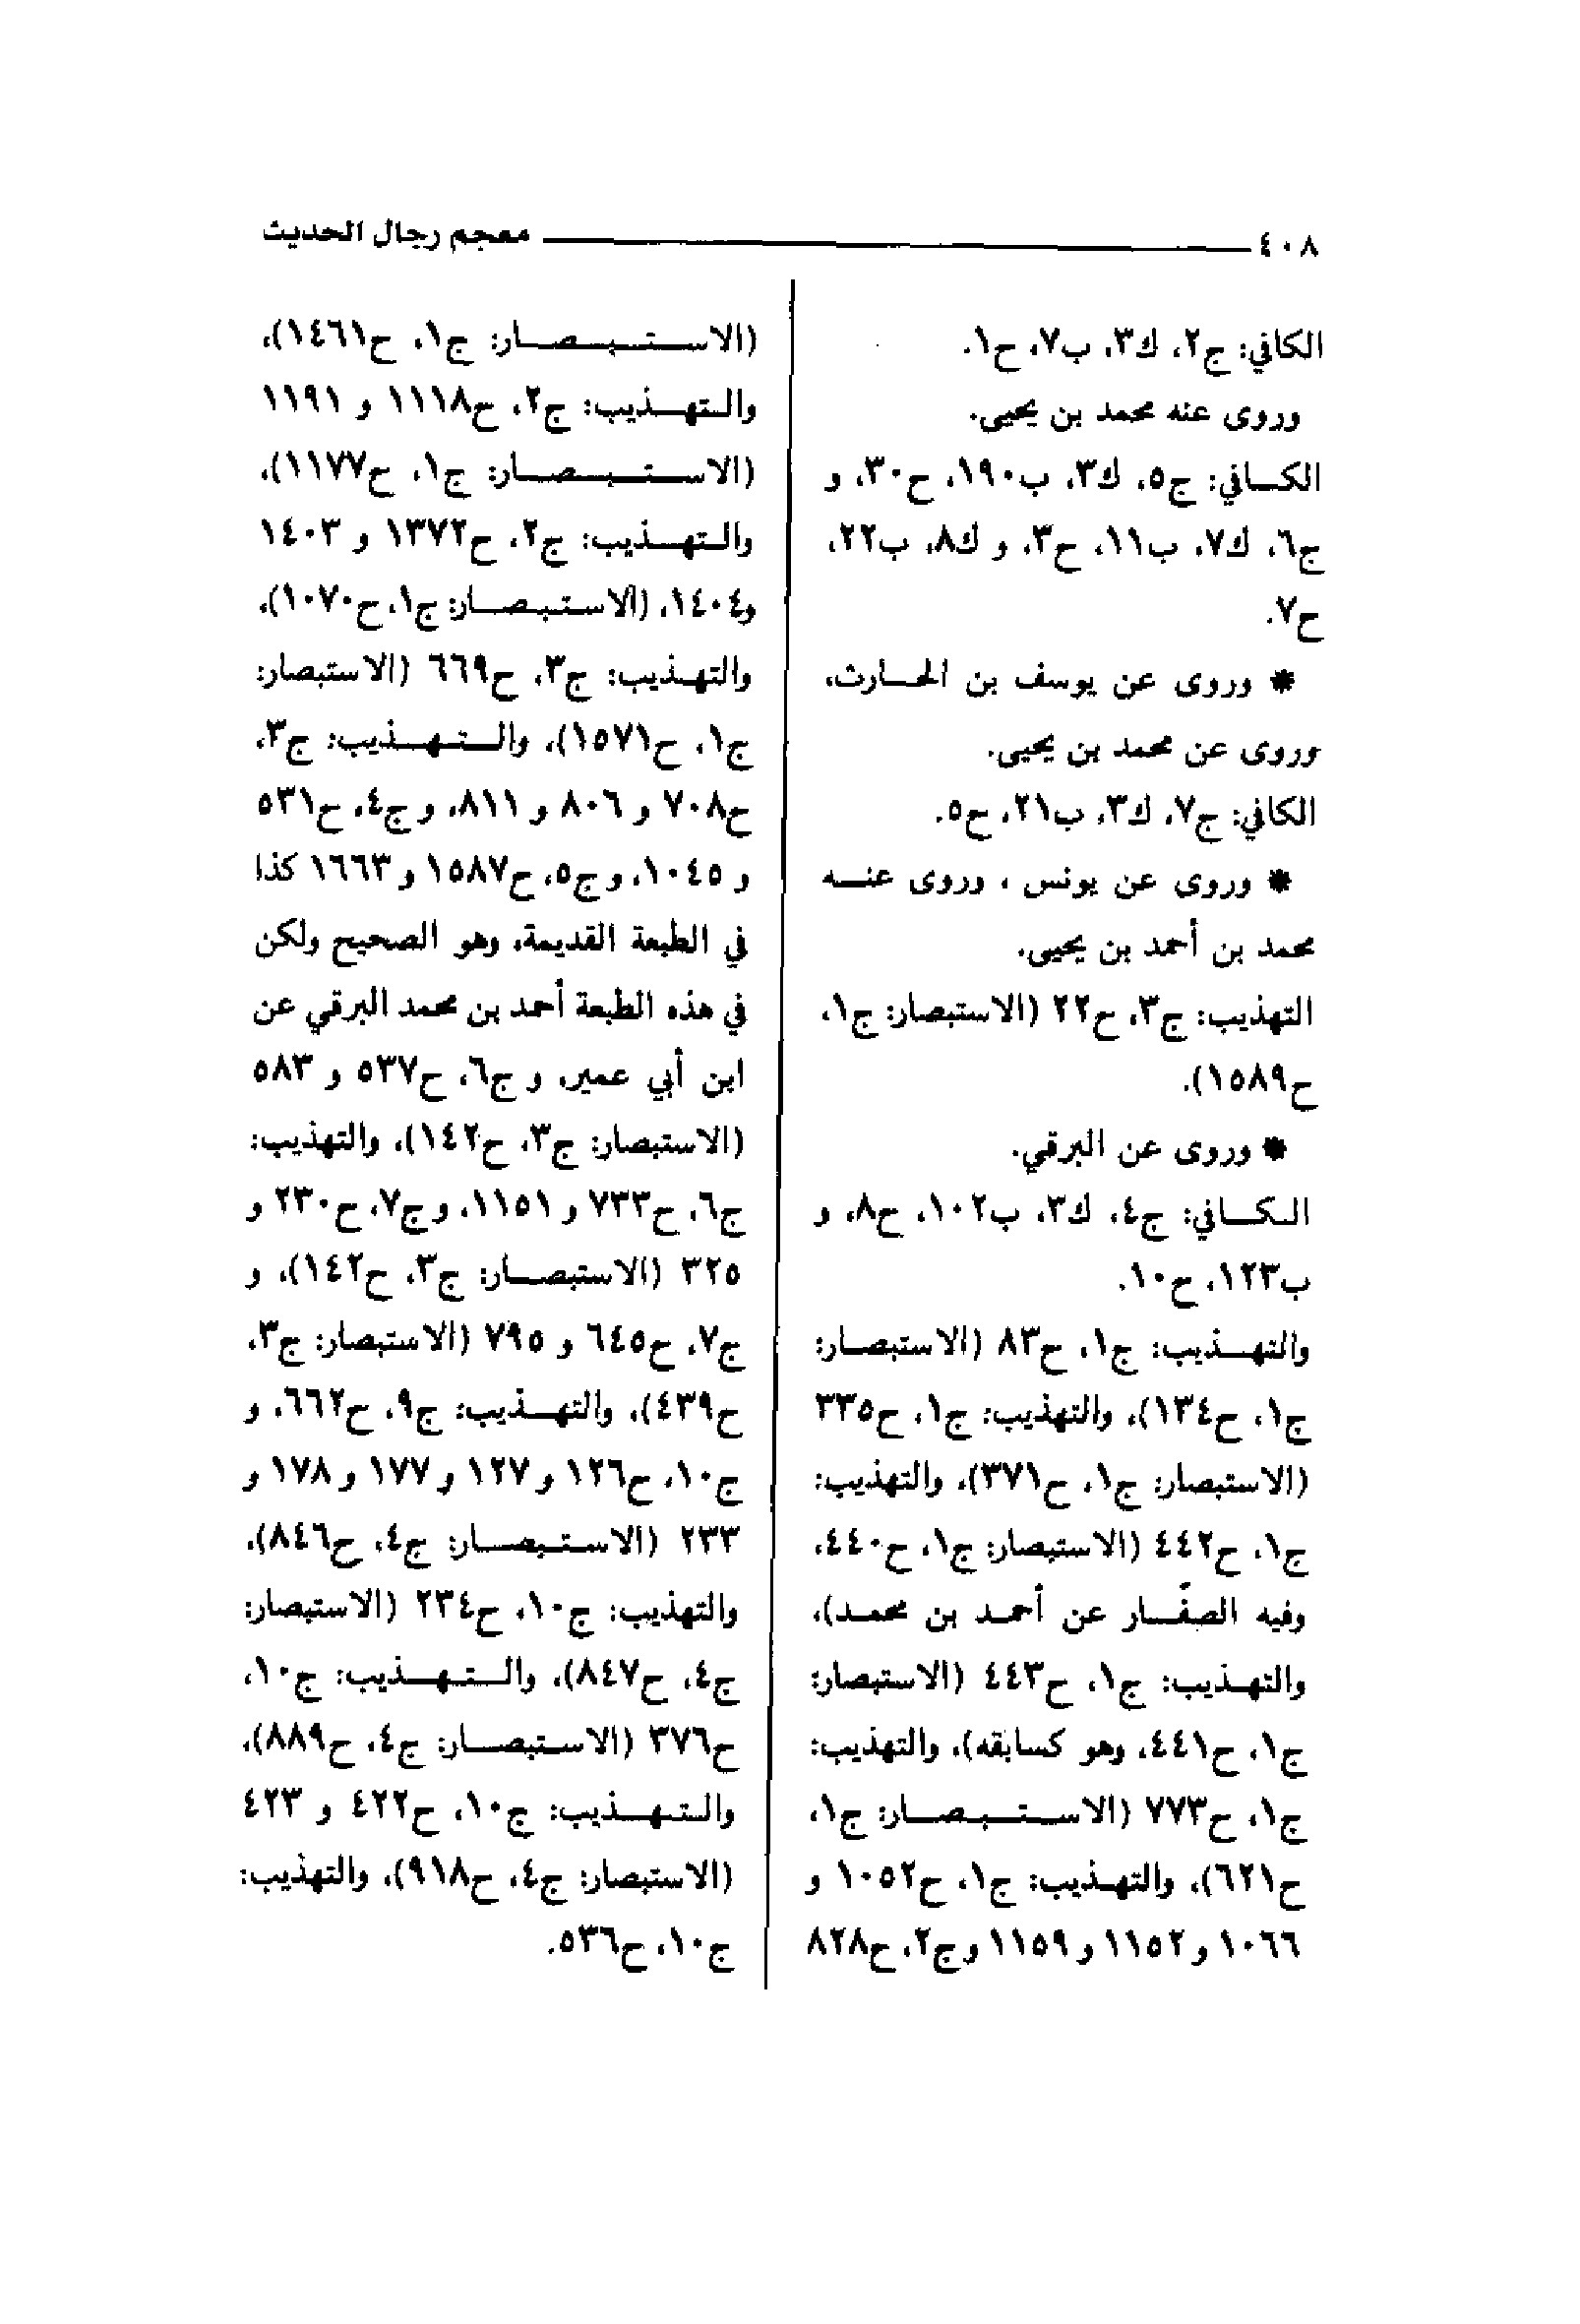 ٤٠٨ معجم رجال الحديث
الكافي: ج٢، ك٣، ب٧، ح١.
وروى عنه محمد بن يحيى.
الكافي: ج٥، ك٣، ب١٩٠، ح٣٠، و
ج٦، ك٧، ب١١، ح٣، و ك٨، ب٢٢،
ح٧.
* وروى عن يوسف بن الحارث،
وروى عن محمد بن يحيى.
الكافي: ج٧، ك٣، ب٢١، ح٥.
* وروى عن يونس ، وروى عنه
محمد بن أحمد بن يحيى.
التهذيب: ج٣، ح٢٢ (الاستبصار: ج١،
ح١٥٨٩).
* وروى عن البرقي.
الكافي: ج٤، ك٣، ب١٠٢، ح٨، و
ب١٢٣، ح١٠.
والتهذيب: ج١، ح٨٣ (الاستبصار:
ج١، ح١٣٤)، والتهذيب: ج١، ح٣٣٥
(الاستبصار: ج١، ح٣٧١)، والتهذيب:
ج١، ح٤٤٢ (الاستبصار: ج١، ح٤٤٠،
وفيه الصفّار عن أحمد بن محمد)،
والتهذيب: ج١، ح٤٤٣ (الاستبصار:
ج١، ح٤٤١، وهو كسابقه)، والتهذيب:
ج١، ح٧٧٣ (الاستبصار: ج١،
ح٦٢١)، والتهذيب: ج١، ح١٠٥٢ و
١٠٦٦ و ١١٥٢ و ١١٥٩ وج٢، ح٨٢٨
(الاستبصار: ج١، ح١٤٦١)،
والتهذيب: ج٢، ح١١١٨ و ١١٩١
(الاستبصار: ج١، ح١١٧٧)،
والتهذيب: ج٢، ح١٣٧٢ و ١٤٠٣
و١٤٠٤، (الاستبصار: ج١، ح١٠٧٠)،
والتهذيب: ج٣، ح٦٦٩ (الاستبصار:
ج١، ح١٥٧١)، والتهذيب: ج٣،
ح٧٠٨ و ٨٠٦ و ٨١١، و ج٤، ح٥٣١
و ١٠٤٥، و ج٥، ح١٥٨٧ و ١٦٦٣ كذا
في الطبعة القديمة، وهو الصحيح ولكن
في هذه الطبعة أحمد بن محمد البرقي عن
ابن أبي عمير، و ج٦، ح٥٣٧ و ٥٨٣
(الاستبصار: ج٣، ح١٤٢)، والتهذيب:
ج٦، ح٧٣٣ و ١١٥١، و ج٧، ح٢٣٠ و
٣٢٥ (الاستبصار: ج٣، ح١٤٢)، و
ج٧، ح٦٤٥ و ٧٩٥ (الاستبصار: ج٣،
ح٤٣٩)، والتهذيب: ج٩، ح٦٦٢، و
ج١٠، ح١٢٦ و ١٢٧ و ١٧٧ و ١٧٨ و
٢٣٣ (الاستبصار: ج٤، ح٨٤٦)،
والتهذيب: ج١٠، ح٢٣٤ (الاستبصار:
ج٤، ح٨٤٧)، والتهذيب: ج١٠،
ح٣٧٦ (الاستبصار: ج٤، ح٨٨٩)،
والتهذيب: ج١٠، ح٤٢٢ و ٤٢٣
(الاستبصار: ج٤، ح٩١٨)، والتهذيب:
ج١٠، ح٥٣٦.